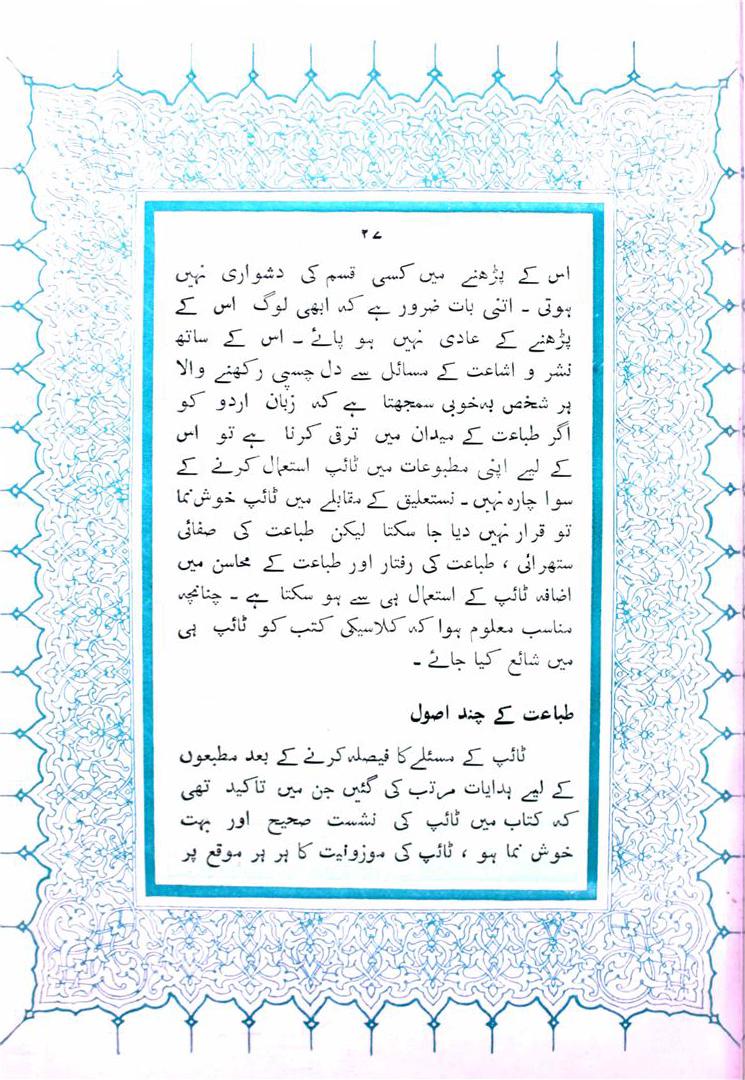 ۲۷
اس کے پڑھنے میں کسی قسم کی دشواری نہیں
ہوتی ۔ اتنی بات ضرور ہے کہ ابھی لوگ اس کے
پڑھنے کے عادی نہیں ہو پائے ۔ اس کے ساتھ
نشر و اشاعت کے مسائل سے دل چسپی رکھنے والا
ہر شخص بہ خوبی سمجھتا ہے کہ زبان اردو کو
اگر طباعت کے میدان میں ترقی کرنا ہے تو اس
کے لیے اپنی مطبوعات میں ٹائپ استعمال کرنے کے
سوا چارہ نہیں ۔ نستعلیق کے مقابلے میں ٹائپ خوش نما
تو قرار نہیں دیا جا سکتا لیکن طباعت کی صفائی
ستھرائی ، طباعت کی رفتار اور طباعت کے محاسن میں
اضافہ ٹائپ کے استعمال ہی سے ہو سکتا ہے ۔ چنانچہ
مناسب معلوم ہوا کہ کلاسیکی کتب کو ٹائپ ہی
میں شائع کیا جائے ۔
طباعت کے چند اصول
ٹائپ کے مسئلے کا فیصلہ کرنے کے بعد مطبعوں
کے لیے ہدایات مرتب کی گئیں جن میں تاکید تھی
کہ کتاب میں ٹائپ کی نشست صحیح اور بہت
خوش نما ہو ، ٹائپ کی موزونیت کا ہر ہر موقع پر